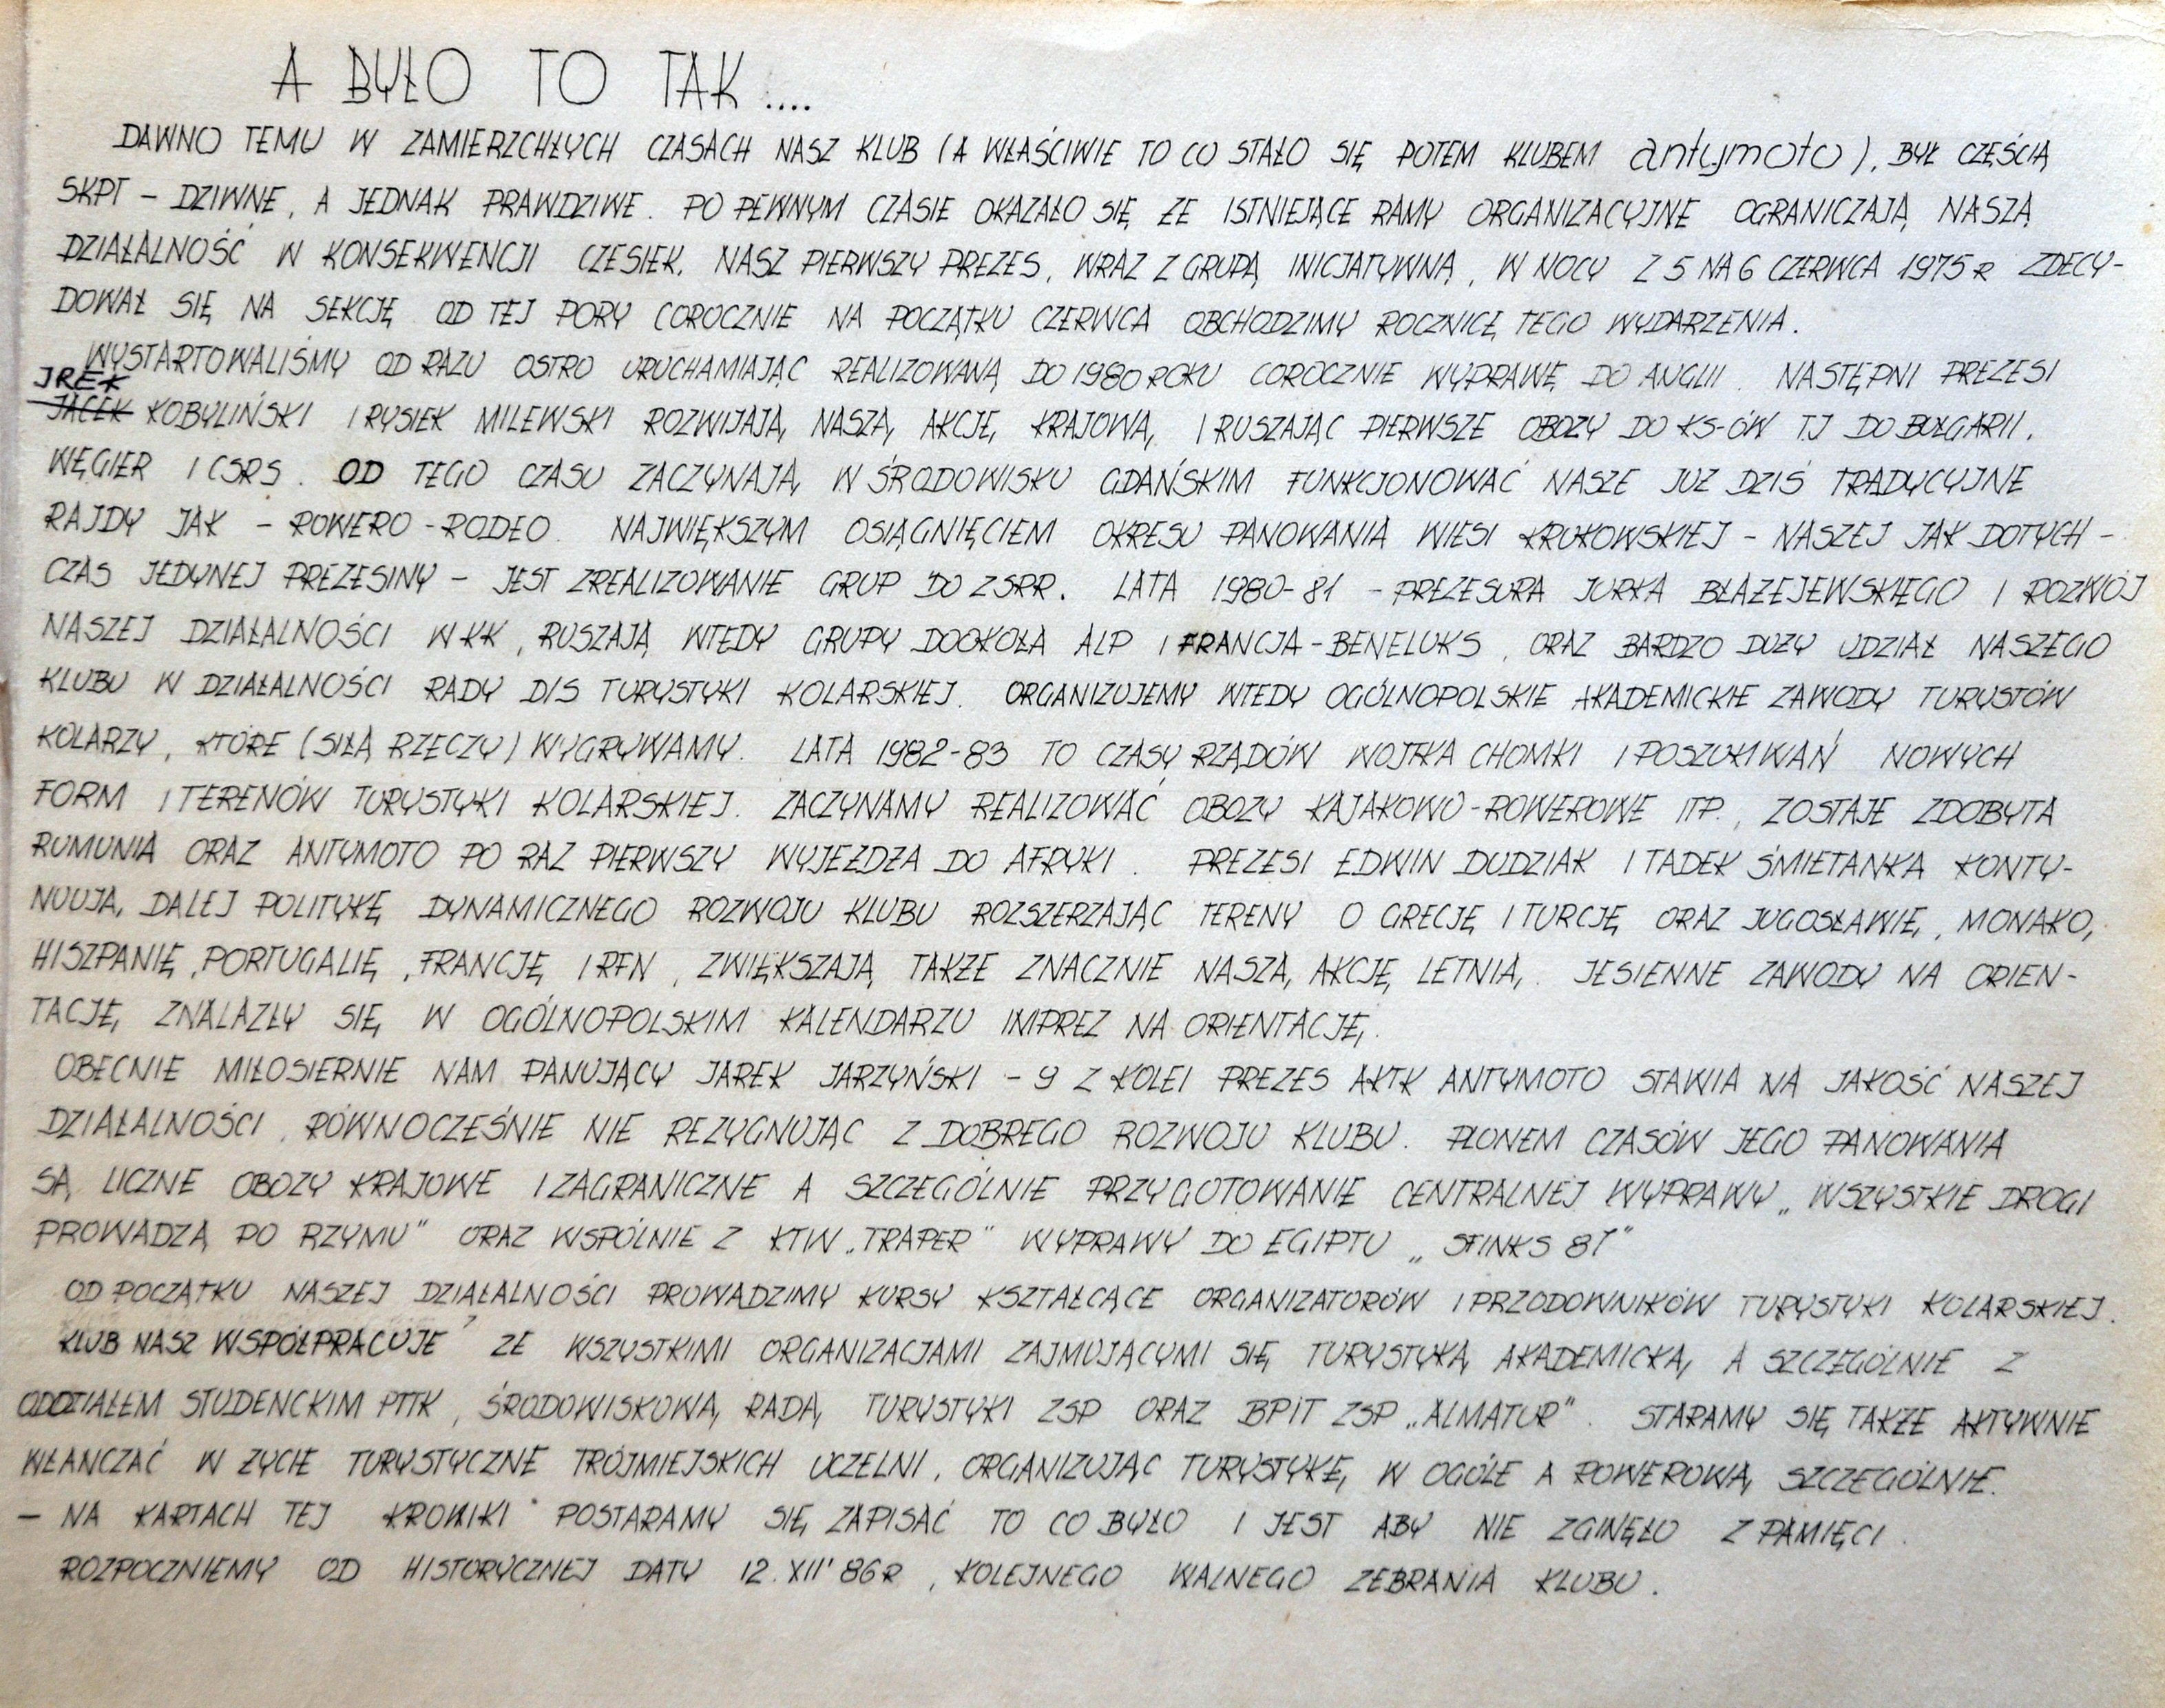 A BYŁO TO TAK....
DAWNO TEMU W ZAMIERZCHŁYCH CZASACH NASZ KLUB (A WŁAŚCIWIE TO CO STAŁO SIĘ POTEM KLUBEM antymoto), BYŁ CZĘŚCIĄ
SKPT – DZIWNE, A JEDNAK PRAWDZIWE. PO PEWNYM CZASIE OKAZAŁO SIĘ ŻE ISTNIEJĄCE RAMY ORGANIZACYJNE OGRANICZAJĄ NASZĄ
DZIAŁALNOŚĆ W KONSEKWENCJI CZESIEK, NASZ PIERWSZY PREZES, WRAZ Z GRUPĄ INICJATYWNĄ, W NOCY Z 5 NA 6 CZERWCA 1975 R ZDECY-
DOWAŁ SIĘ NA SEKCJĘ OD TEJ PORY COROCZNIE NA POCZĄTKU CZERWCA OBCHODZIMY ROCZNICĘ TEGO WYDARZENIA.
WYSTARTOWALIŚMY OD RAZU OSTRO URUCHAMIAJĄC REALIZOWANĄ DO 1980 ROKU COROCZNIE WYPRAWĘ DO ANGLII. NASTĘPNI PREZESI
IREK
JACEK KOBYLIŃSKI I RYSIEK MILEWSKI ROZWIJAJĄ NASZĄ AKCJĘ KRAJOWĄ I RUSZAJĄC PIERWSZE OBOZY DO KS-ÓW TJ DO BUŁGARII,
WĘGIER I CSRS. OD TEGO CZASU ZACZYNAJĄ W ŚRODOWISKU GDAŃSKIM FUNKCJONOWAĆ NASZE JUŻ DZIŚ TRADYCYJNE
RAJDY JAK – ROWERO-RODEO. NAJWIĘKSZYM OSIĄGNIĘCIEM OKRESU PANOWANIA WIESI KRUKOWSKIEJ – NASZEJ JAK DOTYCH-
CZAS JEDYNEJ PREZESINY – JEST ZREALIZOWANIE GRUP DO ZSRR. LATA 1980-81 – PREZESURA JURKA BŁAŻEJEWSKIEGO I ROZWÓJ
NASZEJ DZIAŁALNOŚCI W KK, RUSZAJĄ WTEDY GRUPY DOOKOŁA ALP I FRANCJA-BENELUKS, ORAZ BARDZO DUŻY UDZIAŁ NASZEGO
KLUBU W DZIAŁALNOŚCI RADY D/S TURYSTYKI KOLARSKIEJ. ORGANIZUJEMY WTEDY OGÓLNOPOLSKIE AKADEMICKIE ZAWODY TURYSTÓW
KOLARZY, KTÓRE (SIŁĄ RZECZY) WYGRYWAMY. LATA 1982-83 TO CZASY RZĄDÓW WOJTKA CHOMKI I POSZUKIWAŃ NOWYCH
FORM I TERENÓW TURYSTYKI KOLARSKIEJ. ZACZYNAMY REALIZOWAĆ OBOZY KAJAKOWO-ROWEROWE ITP., ZOSTAJE ZDOBYTA
RUMUNIA ORAZ ANTYMOTO PO RAZ PIERWSZY WYJEŻDŻA DO AFRYKI. PREZESI EDWIN DUDZIAK I TADEK ŚMIETANKA KONTY-
NUUJĄ DALEJ POLITYKĘ DYNAMICZNEGO ROZWOJU KLUBU ROZSZERZAJĄC TERENY O GRECJĘ I TURCJĘ ORAZ JUGOSŁAWIĘ, MONAKO,
HISZPANIĘ, PORTUGALIĘ, FRANCJĘ I RFN, ZWIĘKSZAJĄ TAKŻE ZNACZNIE NASZĄ AKCJĘ LETNIĄ. JESIENNE ZAWODY NA ORIEN-
TACJĘ ZNALAZŁY SIĘ W OGÓLNOPOLSKIM KALENDARZU IMPREZ NA ORIENTACJĘ.
OBECNIE MIŁOSIERNIE NAM PANUJĄCY JAREK JARZYŃSKI – 9 Z KOLEI PREZES AKTK ANTYMOTO STAWIA NA JAKOŚĆ NASZEJ
DZIAŁALNOŚCI, RÓWNOCZEŚNIE NIE REZYGNUJĄC Z DOBREGO ROZWOJU KLUBU. PLONEM CZASÓW JEGO PANOWANIA
SĄ LICZNE OBOZY KRAJOWE I ZAGRANICZNE A SZCZEGÓLNIE PRZYGOTOWANIE CENTRALNEJ WYPRAWY „WSZYSTKIE DROGI
PROWADZĄ PO RZYMU" ORAZ WSPÓLNIE Z KTW „TRAPER" WYPRAWY DO EGIPTU „SFINKS 87"
OD POCZĄTKU NASZEJ DZIAŁALNOŚCI PROWADZIMY KURSY KSZTAŁCĄCE ORGANIZATORÓW I PRZODOWNIKÓW TURYSTYKI KOLARSKIEJ.
KLUB NASZ WSPÓŁPRACUJE ZE WSZYSTKIMI ORGANIZACJAMI ZAJMUJĄCYMI SIĘ TURYSTYKĄ AKADEMICKĄ, A SZCZEGÓLNIE Z
ODDZIAŁEM STUDENCKIM PTTK, ŚRODOWISKOWĄ RADĄ TURYSTYKI ZSP ORAZ BPiT ZSP „ALMATUR". STARAMY SIĘ TAKŻE AKTYWNIE
WŁANCZAĆ W ŻYCIE TURYSTYCZNE TRÓJMIEJSKICH UCZELNI, ORGANIZUJĄC TURYSTYKĘ W OGÓLE A ROWEROWĄ SZCZEGÓLNIE.
– NA KARTACH TEJ KRONIKI POSTARAMY SIĘ ZAPISAĆ TO CO BYŁO I JEST ABY NIE ZGINĘŁO Z PAMIĘCI.
ROZPOCZNIEMY OD HISTORYCZNEJ DATY 12.XII'86R, KOLEJNEGO WALNEGO ZEBRANIA KLUBU.